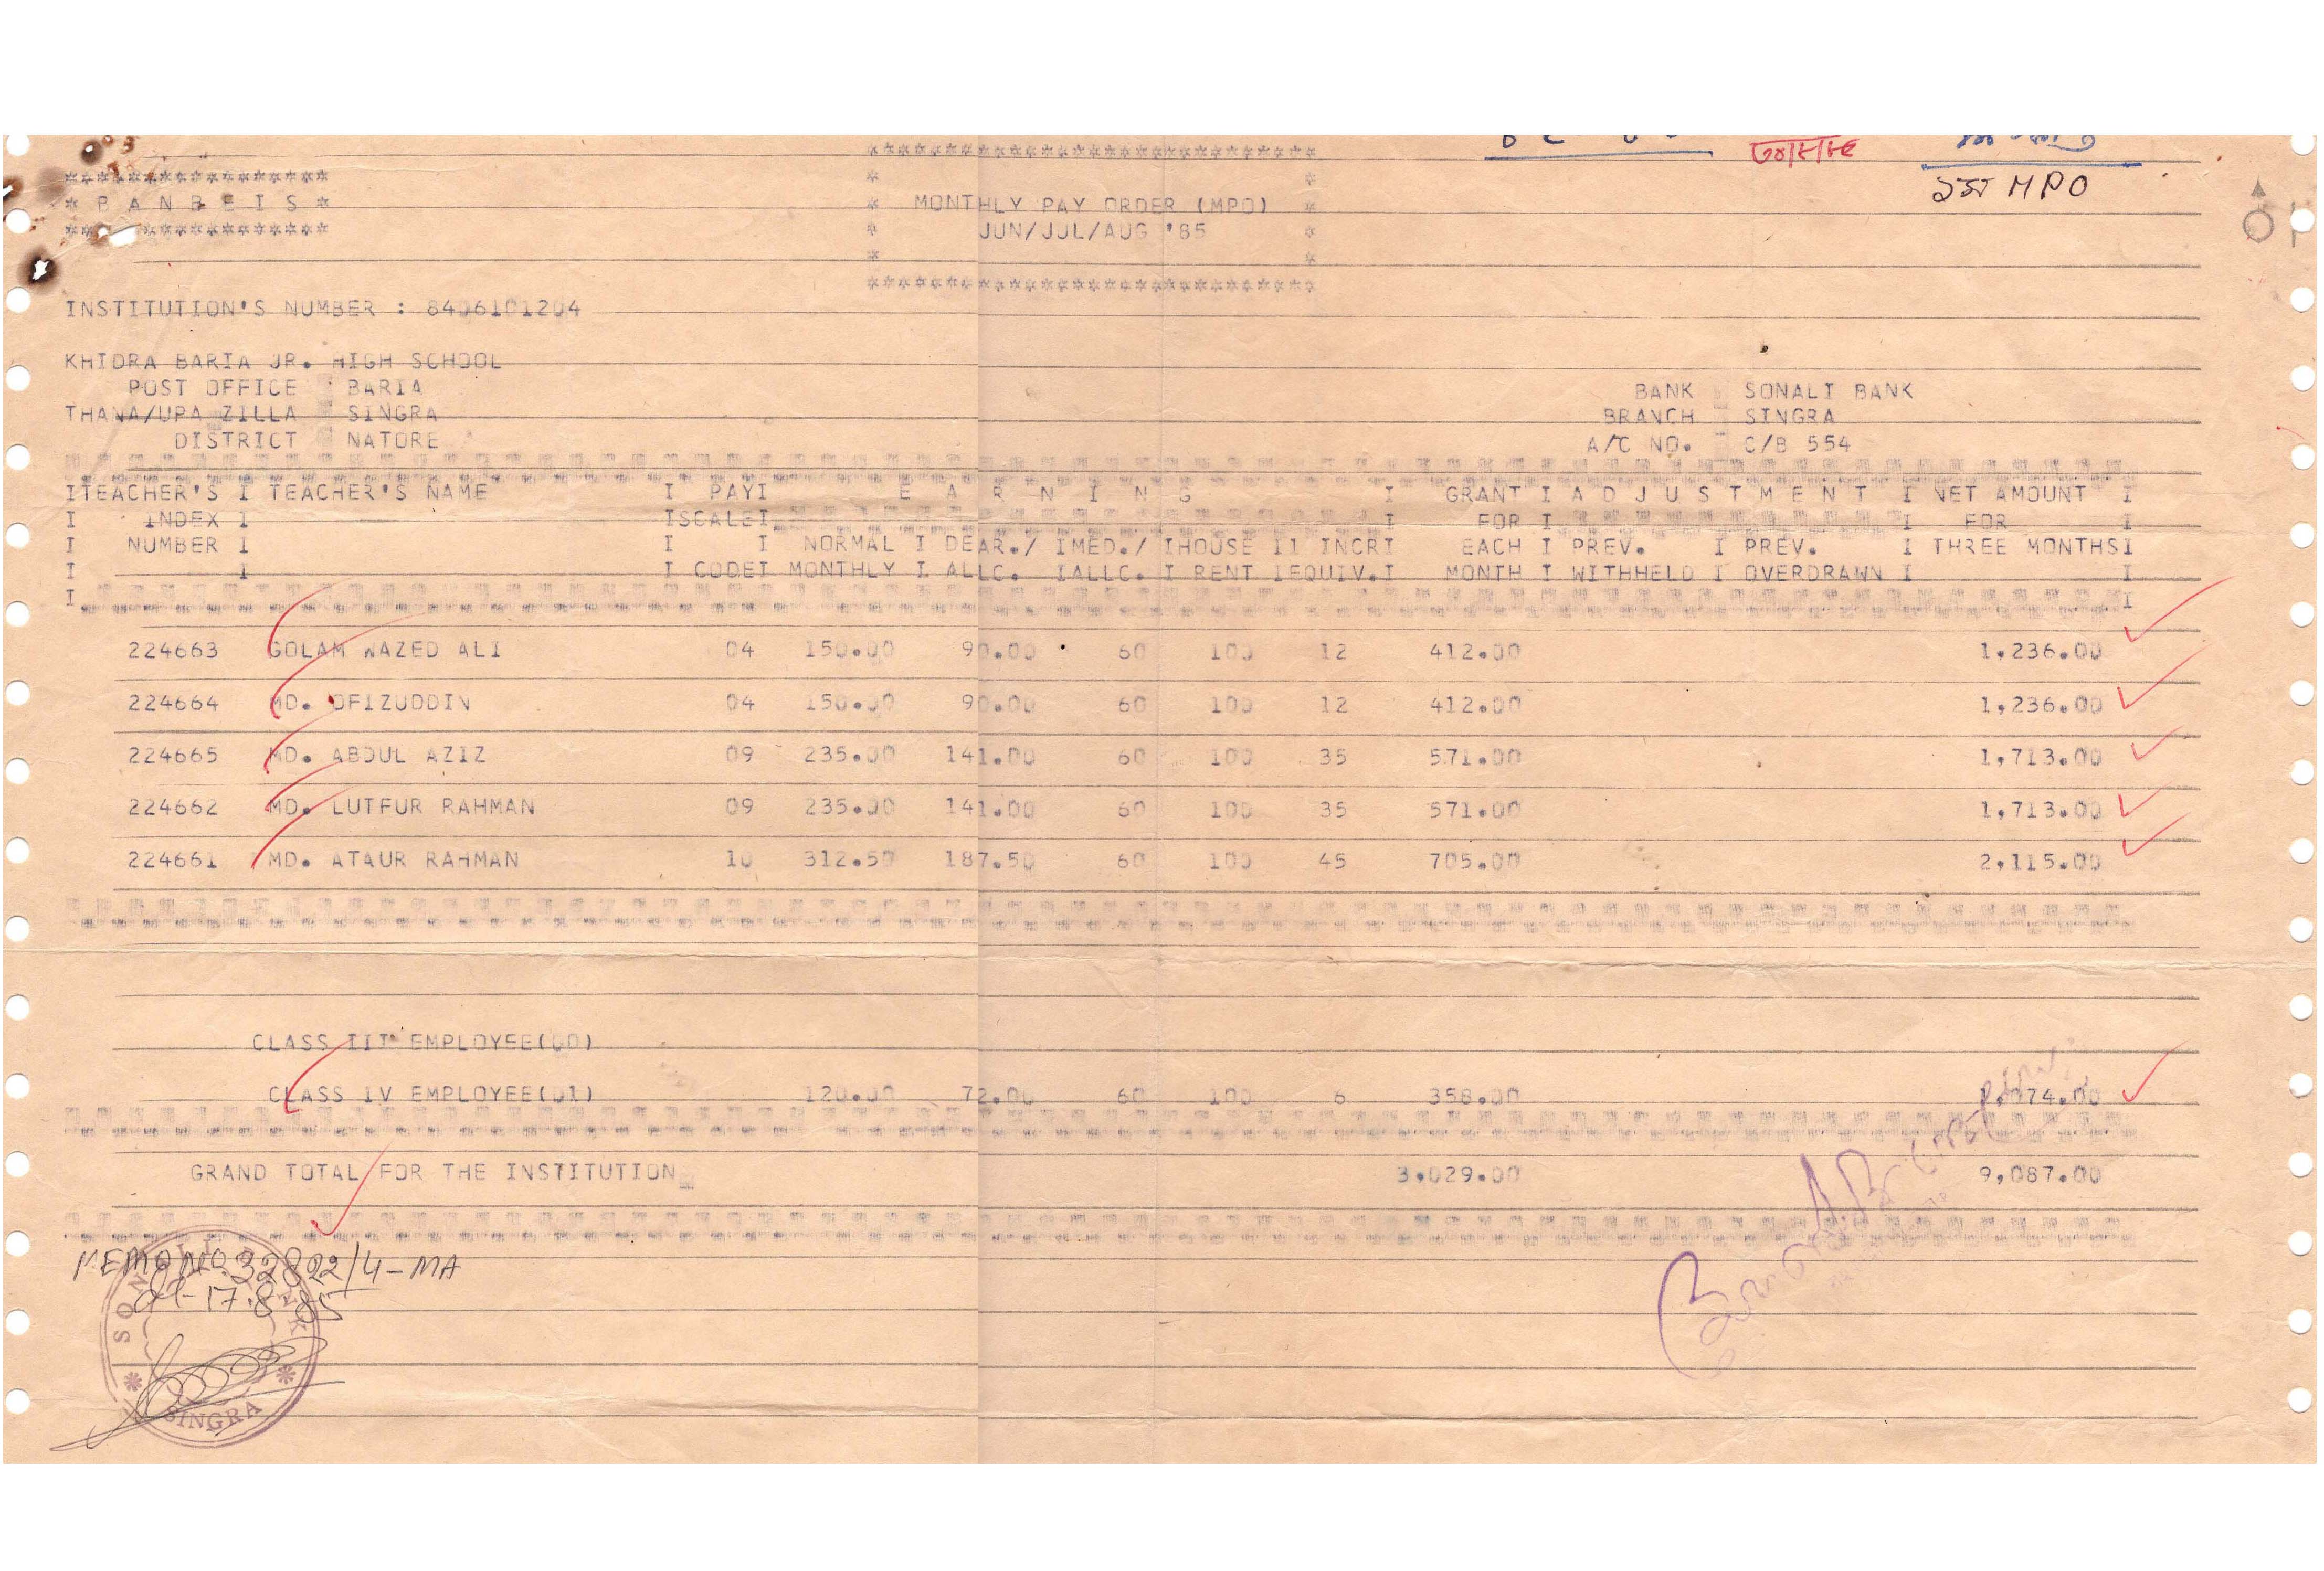 ****************************
*****************
* B A N B E I S *
*****************
* MONTHLY PAY ORDER (MPO) *
* JUN/JUL/AUG '85 *
****************************
১ম MPO
INSTITUTION'S NUMBER : 8406101204
KHIDRA BARIA JR. HIGH SCHOOL
POST OFFICE : BARIA
THANA/UPA ZILLA : SINGRA
DISTRICT : NATORE
BANK : SONALI BANK
BRANCH : SINGRA
A/C NO. : C/B 554
ITEACHER'S I TEACHER'S NAME I PAYI E A R N I N G I GRANT I A D J U S T M E N T I NET AMOUNT I
I INDEX I ISCALEI I FOR I I FOR I
I NUMBER I I I NORMAL I DEAR./ IMED./ IHOUSE I1 INCRI EACH I PREV. I PREV. I THREE MONTHSI
I I I CODEI MONTHLY I ALLC. IALLC. I RENT IEQUIV.I MONTH I WITHHELD I OVERDRAWN I I
224663 GOLAM WAZED ALI 04 150.00 90.00 60 100 12 412.00 1,236.00
224664 MD. OFIZUDDIN 04 150.00 90.00 60 100 12 412.00 1,236.00
224665 MD. ABDUL AZIZ 09 235.00 141.00 60 100 35 571.00 1,713.00
224662 MD. LUTFUR RAHMAN 09 235.00 141.00 60 100 35 571.00 1,713.00
224661 MD. ATAUR RAHMAN 10 312.50 187.50 60 100 45 705.00 2,115.00
CLASS III EMPLOYEE(00)
CLASS IV EMPLOYEE(01) 120.00 72.00 60 100 6 358.00 1,074.00
GRAND TOTAL FOR THE INSTITUTION 3,029.00 9,087.00
MEMO NO. 32822/4-MA
dt-17.8.85
SONALI BANK
SINGRA